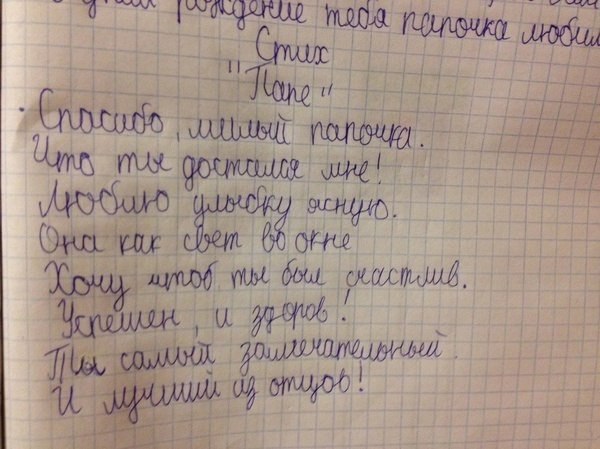 днём рождение тебя папочка любим
Стих
"Папе"
Спасибо, милый папочка.
Что ты достался мне!
Люблю улыбку ясную.
Она как свет во окне
Хочу чтоб ты был счастлив.
Успешен, и здоров!
Ты самый замечательный.
И лучший из отцов!